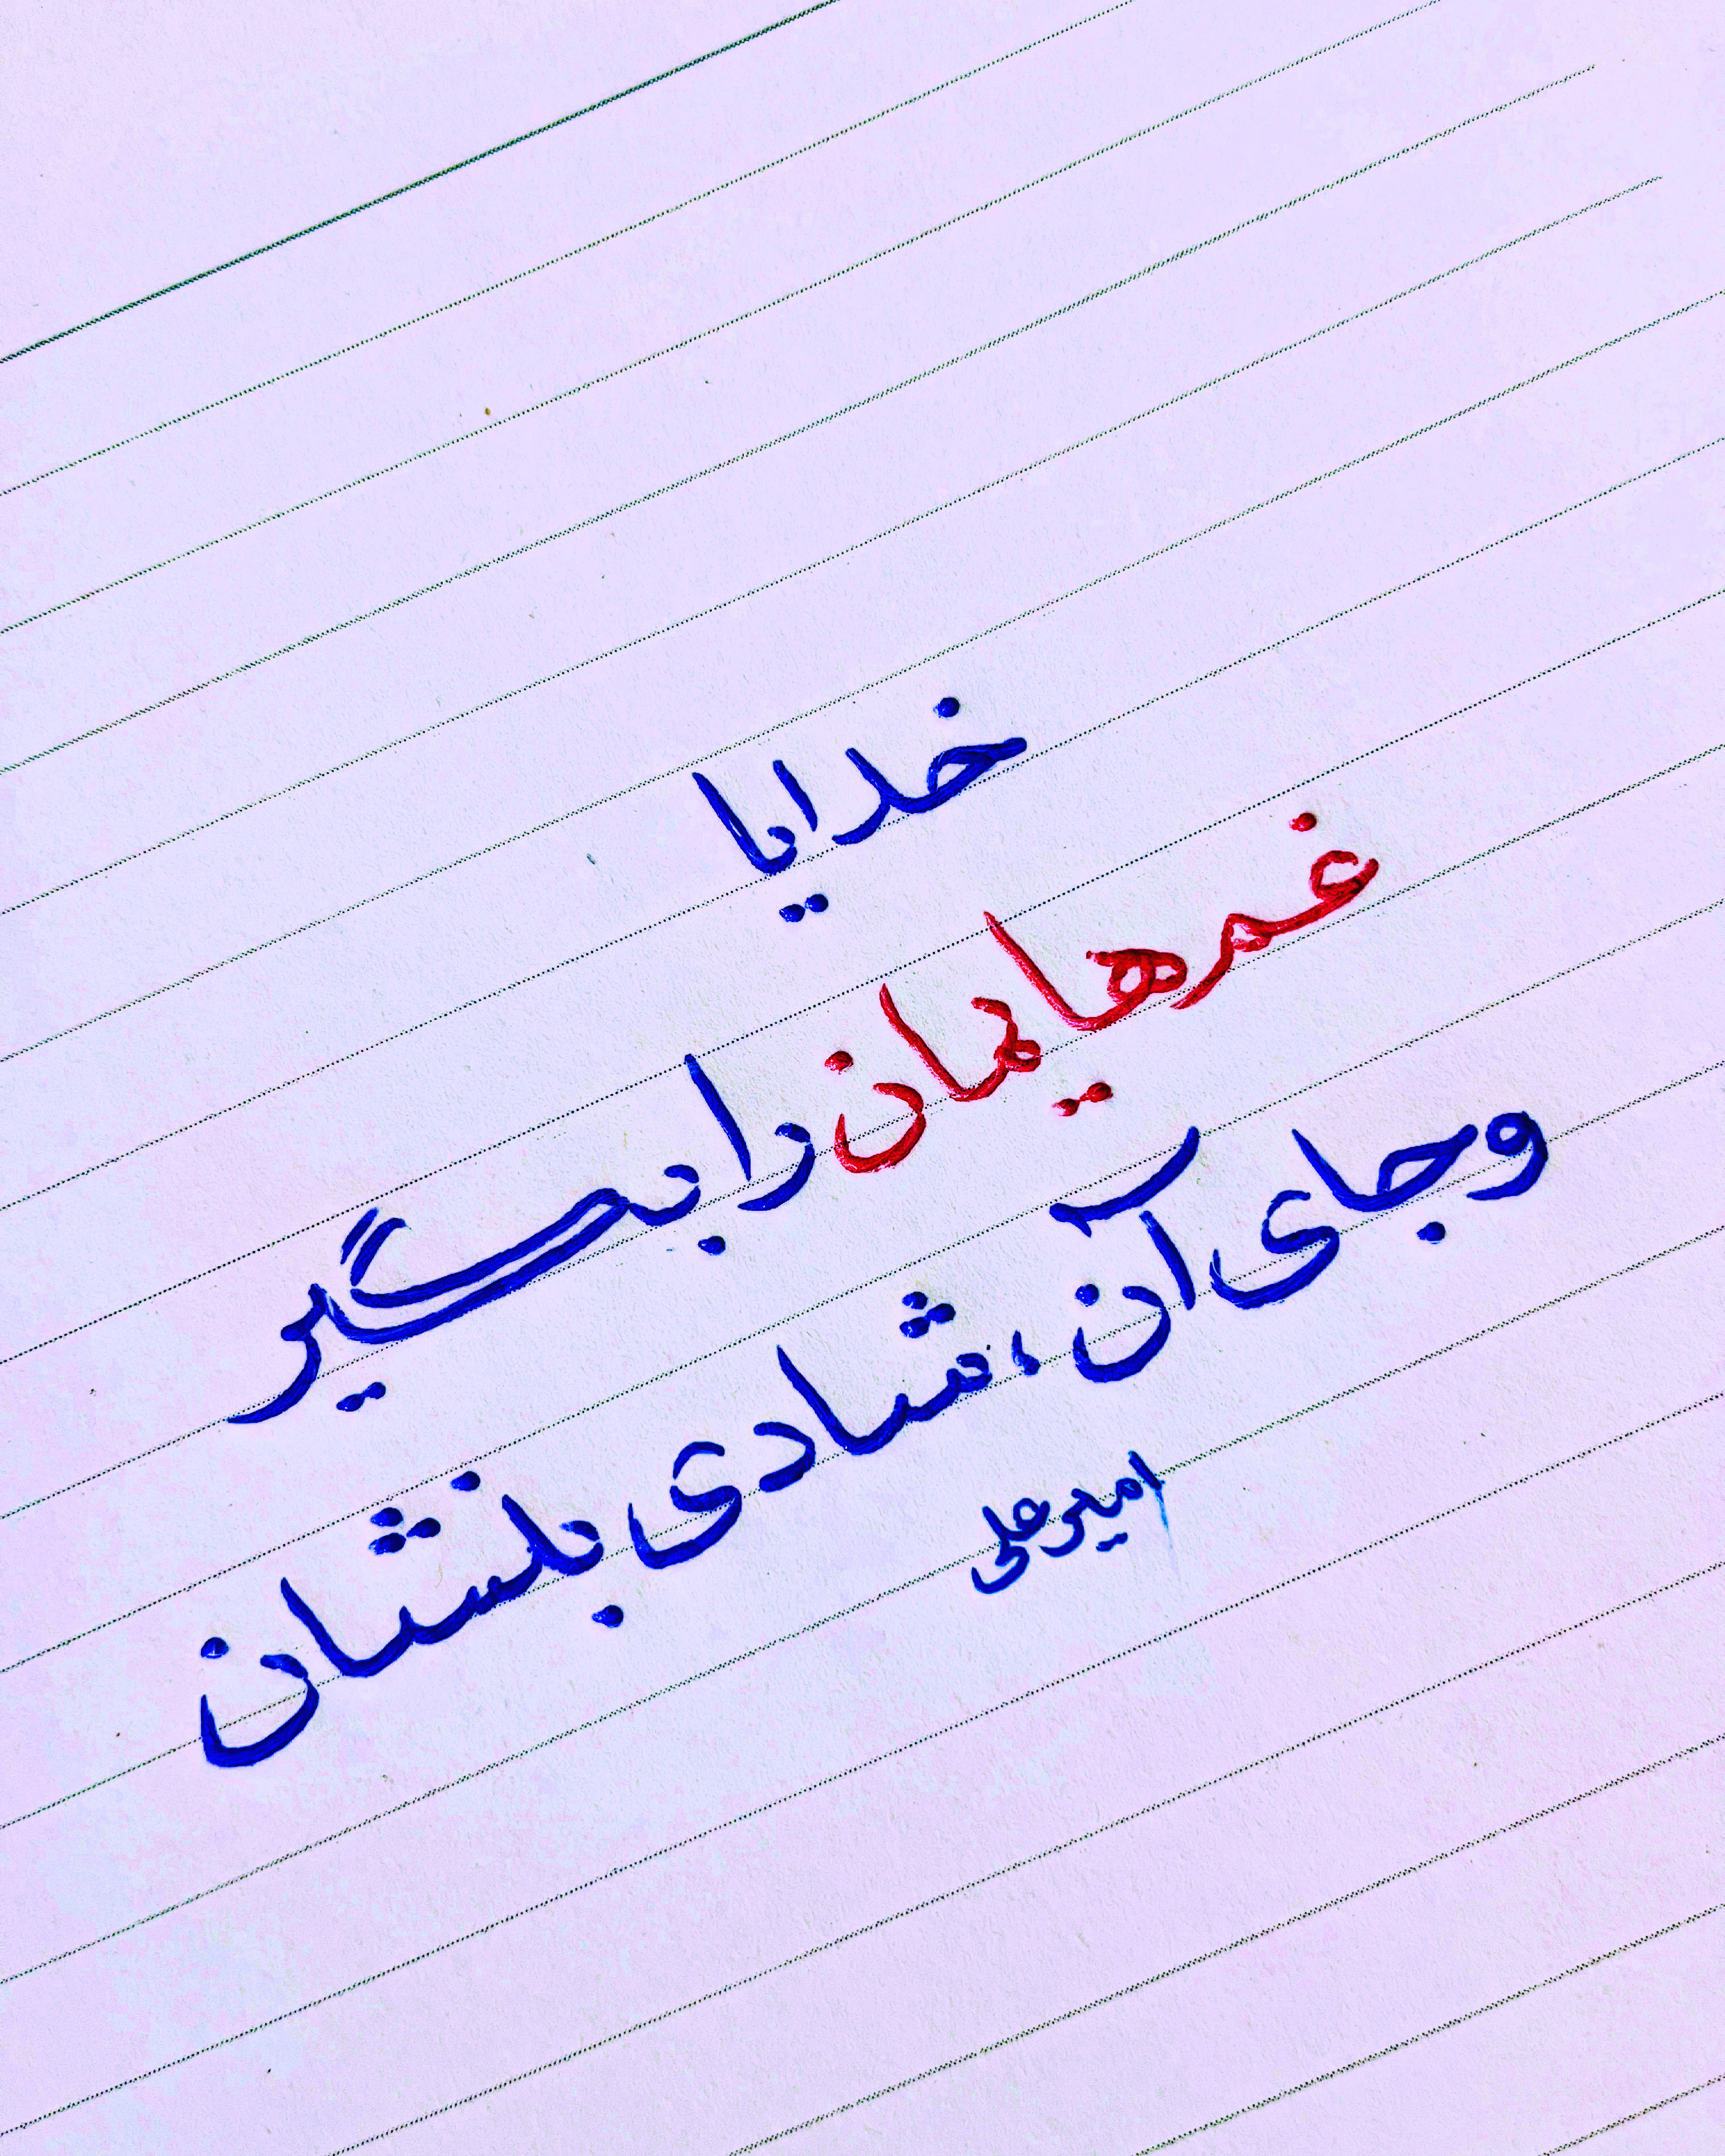 خدایا
غم‌هایمان را بگیر
و جای آن، شادی بنشان
امیرعلی